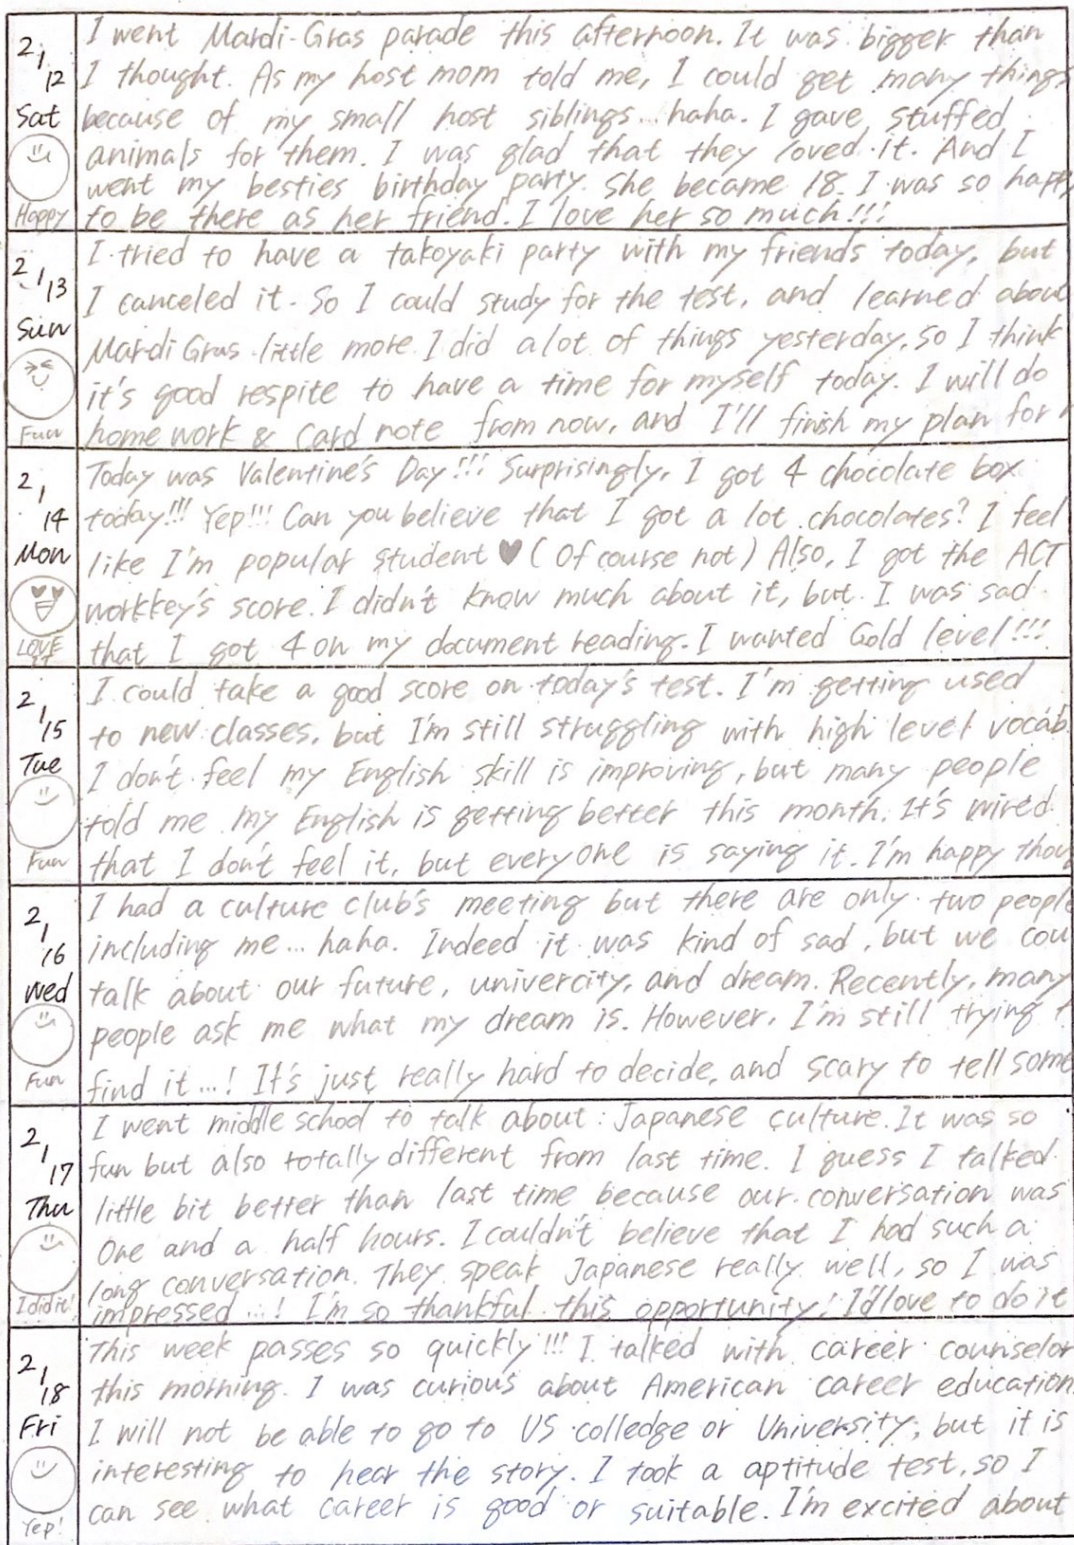 2/12
Sat
Happy
I went Mardi-Gras parade this afternoon. It was bigger than
I thought. As my host mom told me, I could get many things
because of my small host siblings... haha. I gave stuffed
animals for them. I was glad that they loved it. And I
went my besties birthday party. She became 18. I was so happy
to be there as her friend. I love her so much!!!
2/13
Sun
Fun
I tried to have a takoyaki party with my friends today, but
I canceled it. So I could study for the test, and learned about
Mardi Gras little more. I did a lot of things yesterday, so I think
it's good respite to have a time for myself today. I will do
home work & Card note from now, and I'll finish my plan for
2/14
Mon
LOVE IT
Today was Valentine's Day!!! Surprisingly, I got 4 chocolate box
today!!! Yep!!! Can you believe that I got a lot chocolates? I feel
like I'm popular student ♥ (Of course not) Also, I got the ACT
workkey's score. I didn't know much about it, but I was sad
that I got 4 on my document reading. I wanted Gold level!!!
2/15
Tue
Fun
I could take a good score on today's test. I'm getting used
to new classes, but I'm still struggling with high level vocab.
I don't feel my English skill is improving, but many people
told me my English is getting better this month. It's wired
that I don't feel it, but everyone is saying it. I'm happy thou
2/16
Wed
Fun
I had a culture club's meeting but there are only two people
including me... haha. Indeed it was kind of sad, but we cou
talk about our future, univercity, and dream. Recently, many
people ask me what my dream is. However, I'm still trying t
find it...! It's just really hard to decide, and scary to tell some
2/17
Thu
I did it!
I went middle school to talk about Japanese culture. It was so
fun but also totally different from last time. I guess I talked
little bit better than last time because our conversation was
One and a half hours. I couldn't believe that I had such a
long conversation. They speak Japanese really well, so I was
impressed...! I'm so thankful this opportunity! I'd love to do it
2/18
Fri
Yep!
This week passes so quickly!!! I talked with career counselor
this morning. I was curious about American career education
I will not be able to go to US colledge or University, but it is
interesting to hear the story. I took a aptitude test, so I
can see what career is good or suitable. I'm excited about